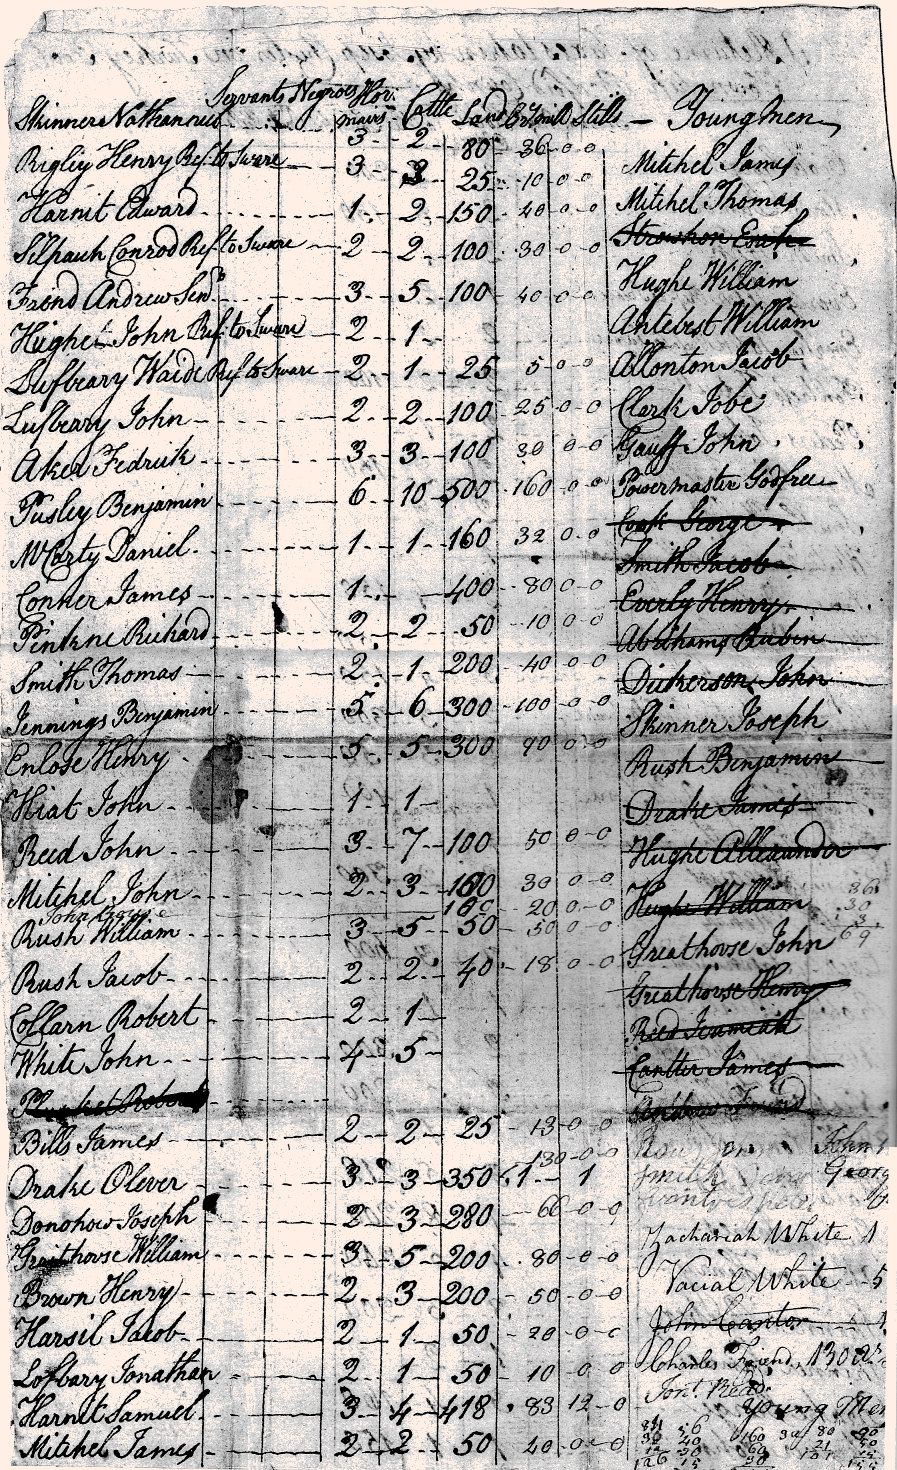 Servants Negroes Hor. Cattle Land Gr. mill Stills — Young men
mairs
Skinner Nathanniel 3 2 80 36-0-0
Rigley Henry Ref. to Sware 3 3 25 10-0-0 Mitchel James
Harnit Edward 1 2 150 40-0-0 Mitchel Thomas
Silpauh Conrod Ref. to Sware 2 2 100 30-0-0
Frend Andrew Senr 3 5 100 40-0-0 Hughe William
Hughes John Ref. to Sware 2 1 Antebest William
Lufbeary Waide Ref. to Sware 2 1 25 5-0-0 Allonton Jacob
Lufbeary John 2 2 100 25-0-0 Clerk Jobe
Aker Fedrick 3 3 100 30-0-0 Gauff John
Pusley Benjamin 6 10 500 160-0-0 Powermaster Godfree
McCarty Daniel 1 1 160 32-0-0 Cook George
Conner James 1 400 80-0-0 Smith Jacob
Everly Henry
Pinkne Richard 2 2 50 10-0-0 Abrihams Rubin
Smith Thomas 2 1 200 40-0-0 Dickerson John
Jennings Benjamin 5 6 300 100-0-0 Skinner Joseph
Enlose Henry 5 5 300 90-0-0 Rush Benjamin
Hiat John 1 1 Drake James
Reed John 3 7 100 50-0-0 Hughe Allexander
Mitchel John 2 3 30-0-0 Hughe William
John 100 20-0-0
Rush William 3 5 50 50-0-0 Greathouse John
Rush Jacob 2 2 40 18-0-0 Greathouse Henry
Collarn Robert 2 1 Reed Jeremiah
White John 4 5 Cantter James
Robert Andrew Friend
Bills James 2 2 25 13-0-0 John
130-0-0
Drake Olever 3 3 350 1 1 Smith Georg
Donohow Joseph 2 3 280 66-0-0
Graithouse William 3 5 200 80-0-0 Zachariah White 1
Brown Henry 2 3 200 50-0-0 Vacial White 5
Harsil Jacob 2 1 50 20-0-0 John Cantor 1
Lofbary Jonathan 2 1 50 10-0-0 Charles Friend, 130
Harnit Samuel 3 4 418 83 12-0 Jont. Read
Young Men
Mitchel James 2 2 50 40-0-0